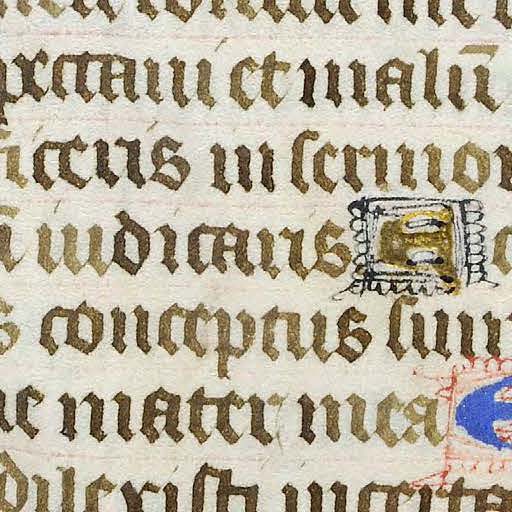 peccavi et malū
ficeris in sermo
iudicaris E
conceptus sum
me mater mea E
dilexisti incerta